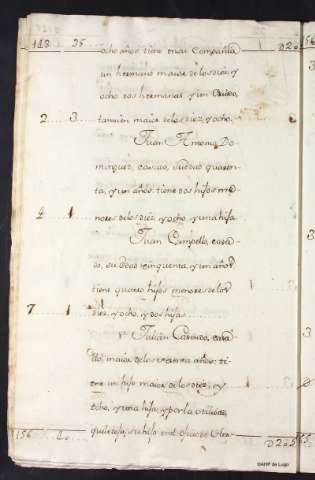 118 35 D20
ocho años tiene en su Compañia
un hermano maior de los diez, y
ocho dos hermanas y un Criado,
2 3 tambien maior de los diez, y ocho,
Juan Antonio Do-
minguez, casado, su edad quaren-
ta, y un años, tiene dos hijos me-
4 1 nores de los diez, y ocho, y una hija
Juan Campello, casa-
do, su edad cinquenta, y un años,
tiene quatro hijos menores de los
7 1 diez, y ocho, y dos hijas
Julian casa
do, maior de los sesenta años, ti-
ene un hijo maior de los diez, y
ocho, y una hija, y por la utilidad,
que su hijo en el oficio de
156 40 D205
©AHP de Lugo